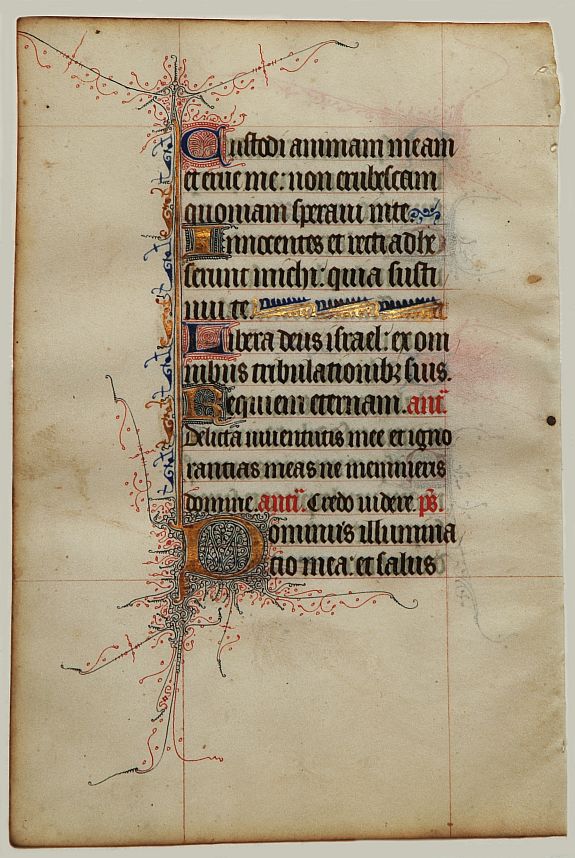 Custodi animam meam
et erue me: non erubescam
quoniam speraui in te.
Innocentes et recti adhe
serunt michi: quia susti
nui te.
Libera deus israel: ex om
nibus tribulationibꝫ suis.
Requiem eternam. an̄t.
Delicta iuuentutis mee et igno
rantias meas ne memineris
domine. an̄t. Credo uidere. p̄s.
Dominus illumina
cio mea: et salus